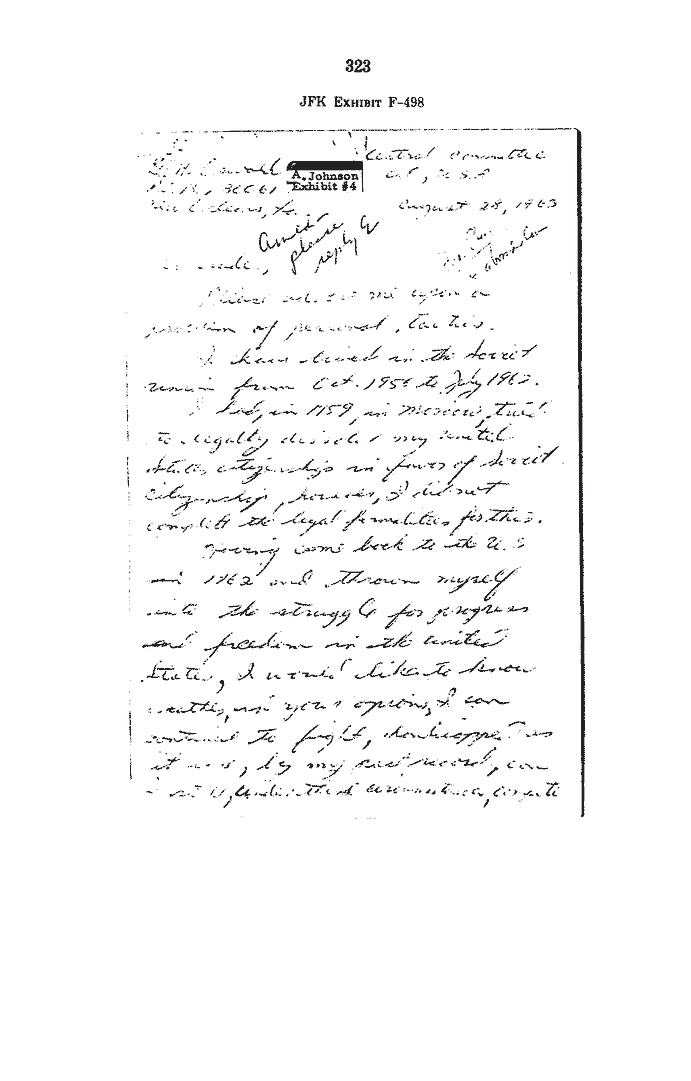 323
JFK EXHIBIT F-498
L. H. Oswald
A. Johnson
Exhibit #4
Central Committee
U.S.A
August 28, 1963
please
reply
Please me upon a
problem of personal tactics.
I have lived in the Soviet
from Oct. 1959 to July 1962.
I had, in 1959, in Moscow, tried
to legally my United
States citizenship in favor of Soviet
citizenship, however, I did not
complete the legal formalities for this.
Having come back to the U.S
in 1962 and thrown myself
into the struggle for progress
and freedom in the United
States, I would like to know
in your I can
to fight, handicapped as
it were, by my past record, can
I under these circumstances, compete